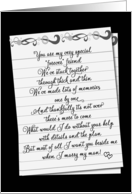 You are my very special
"forever" friend.
We've stuck together
through thick and thin.
We've made lots of memories
one by one...
And thankfully its not over
there's more to come.
What would I do without your help
with details and the plan.
But most of all, I want you beside me
when I marry my man!